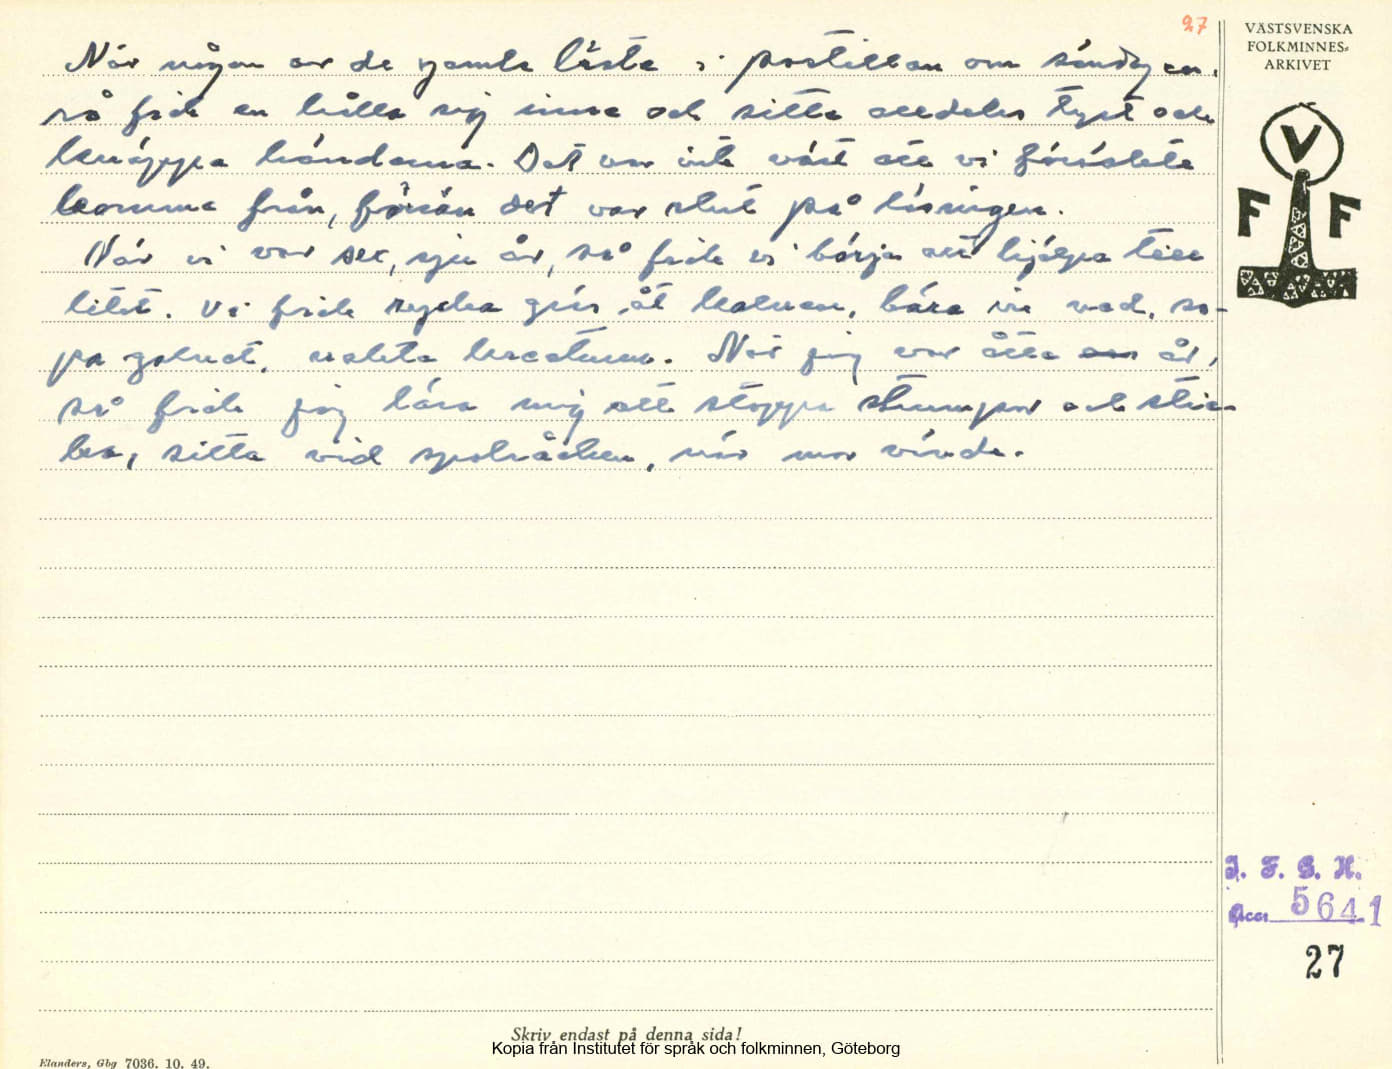 27
VÄSTSVENSKA
FOLKMINNES-
ARKIVET
När någon av de gamla läste i postillan om söndagen,
så fick en hålla sig inne och sitta alldeles tyst och
knäppa händerna. Det var inte värt att vi försökte
komma från, förrän det var slut på läsningen.
När vi var sex, sju år, så fick vi börja att hjälpa till
litet. Vi fick rycka gräs åt kalven, bära in ved, so-
pa golvet, vakta kreaturen. När jag var åtta år,
så fick jag lära mig att stoppa strumpor och stic-
ka, sitta vid spolråcken, när mor vävde.
V
F F
I. F. G. H.
Acc. 5641
27
Skriv endast på denna sida!
Kopia från Institutet för språk och folkminnen, Göteborg
Elanders, Gbg 7036. 10. 49.